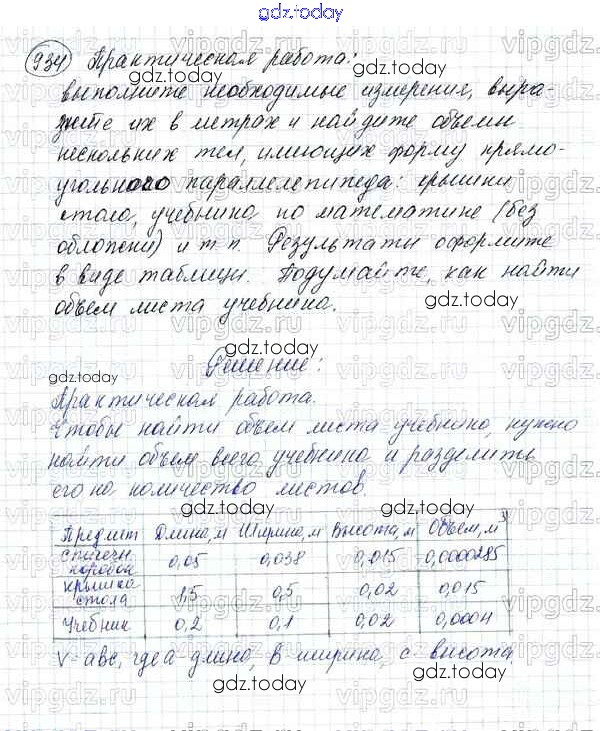 gdz.today
934 Практическая работа:
gdz.today
выполните необходимые измерения, выра-
зите их в метрах и найдите объемы
нескольких тел, имеющих форму прямо-
угольного параллелепипеда: крышки
стола, учебника по математике (без
обложки) и т.п. Результаты оформите
в виде таблицы. Подумайте, как найти
объем листа учебника.
gdz.today
gdz.today
Решение:
gdz.today
Практическая работа.
Чтобы найти объем листа учебника, нужно
найти объем всего учебника и разделить
его на количество листов.
Предмет Длина, м Ширина, м Высота, м Объем, м³
спичечн. коробок 0,05 0,038 0,015 0,0000285
крышка стола 1,5 0,5 0,02 0,015
Учебник 0,2 0,1 0,02 0,0004
V=abc, где a длина, в ширина, с высота.
gdz.today
gdz.today